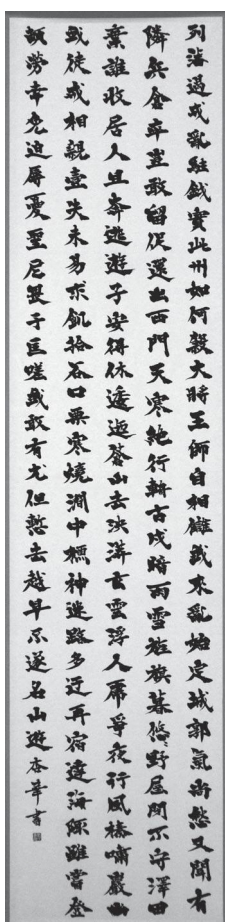 列藩過成亂鈇鉞實此州如何殺大將王師自相讎我來亂始定城郭氣尚愁又聞有
隣兵金卒豈敢留促還出西門天寒絶行輈古戍暗雨雪旌旗暮悠悠野屋閉不守澤田
棄誰收居人且奔逃遊子安得休逶迤蒼山去泱漭玄雲浮人虎爭夜行風榛嘯巖幽
我徒或相親壹失未易求飢拾谷口栗寒燒澗中樵神迷路多迂再宿達海陬雖當登
頓勞幸免迫辱憂聖尼畏于匡嗟我敢有尤但慙去越早不遂名山遊 書